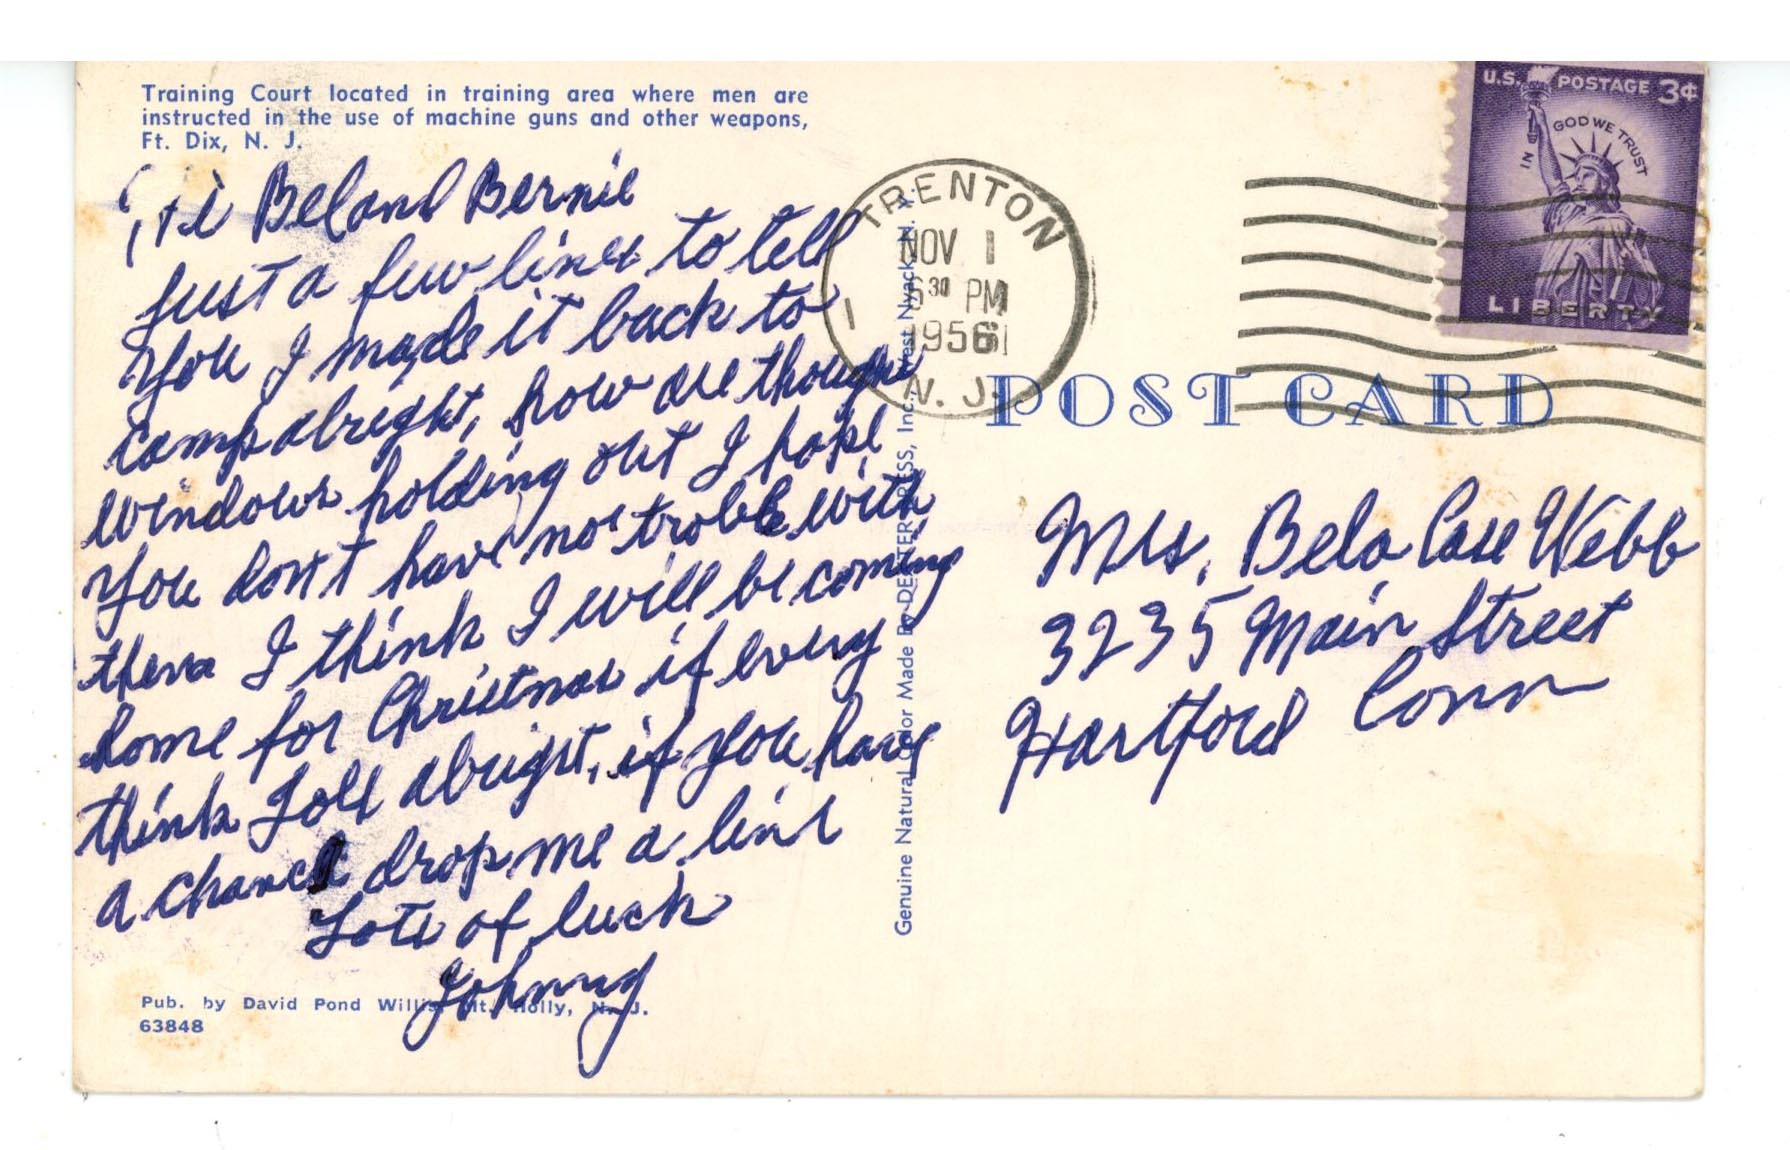 Training Court located in training area where men are
instructed in the use of machine guns and other weapons,
Ft. Dix, N. J.
Hi Bel and Bernie
Just a few lines to tell
You I made it back to
camp alright, how are thoughs
windows holding out I hope
You don't have no troble with
them I think I will be coming
home for Christmas if every
think Goes alright, if you have
a chance drop me a line
Lots of luck
Johnny
Pub. by David Pond Willis, Mt. Holly, N. J.
63848
Genuine Natural Color Made By DEXTER PRESS, Inc., West Nyack, N. Y.
TRENTON
NOV 1
30 PM
1956
N. J.
1
U.S. POSTAGE 3¢
IN GOD WE TRUST
LIBERTY
POST CARD
Mrs. Bela Case Webb
3235 Main Street
Hartford Conn